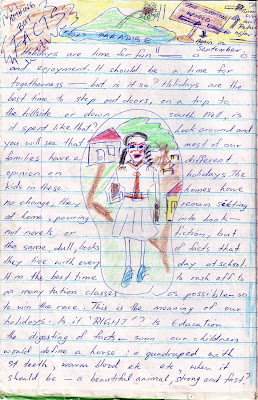 FACTS
PARADISE
September
"Holidays are time for fun"
and enjoyment. It should be a time for
togetherness but is it so? Holidays are the
best time to step out doors, on a trip to
the hillside or down south. Well, is
it spent like that? Look around and
you will see that most of our
families have a different
opinion on holidays. The
kids in these homes have
no change, they remain sitting
at home, pouring into book -
not novels or fiction, but
the same dull books of facts that
they live with every day at school
It is the best time to rush off to
as many tution classes as possible - so
to win the race. This is the meaning of our
holidays. Is it 'RIGHT'? Is Education
the digesting of facts - some our children
would define a horse: a quadruped with
teeth, warm blood etc etc, when it
should be - a beautiful animal, strong and fast?